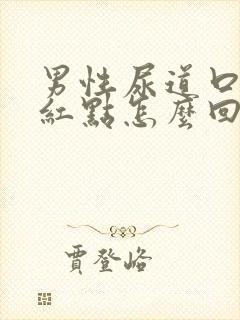 男性尿道口
紅點怎麼回
賈登峪